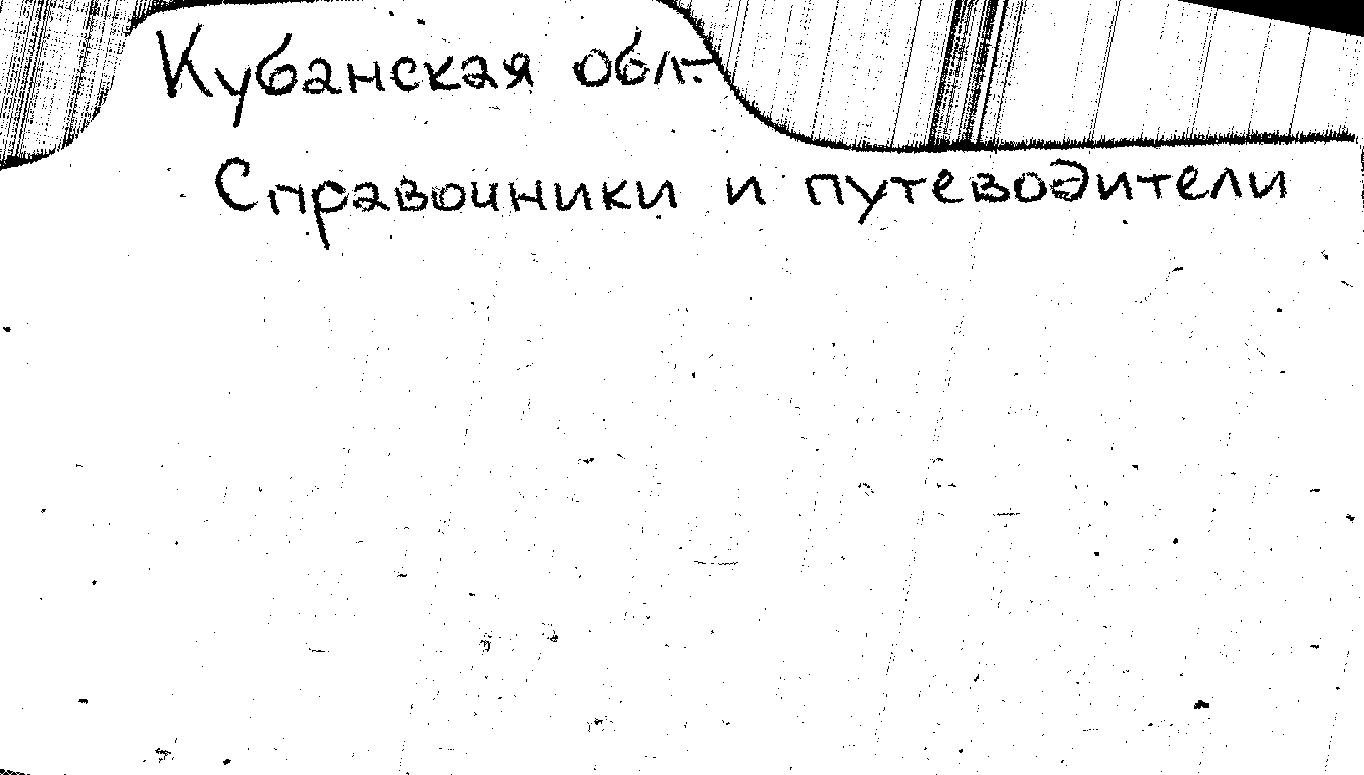 Кубанская обл.-
Справочники и путеводители